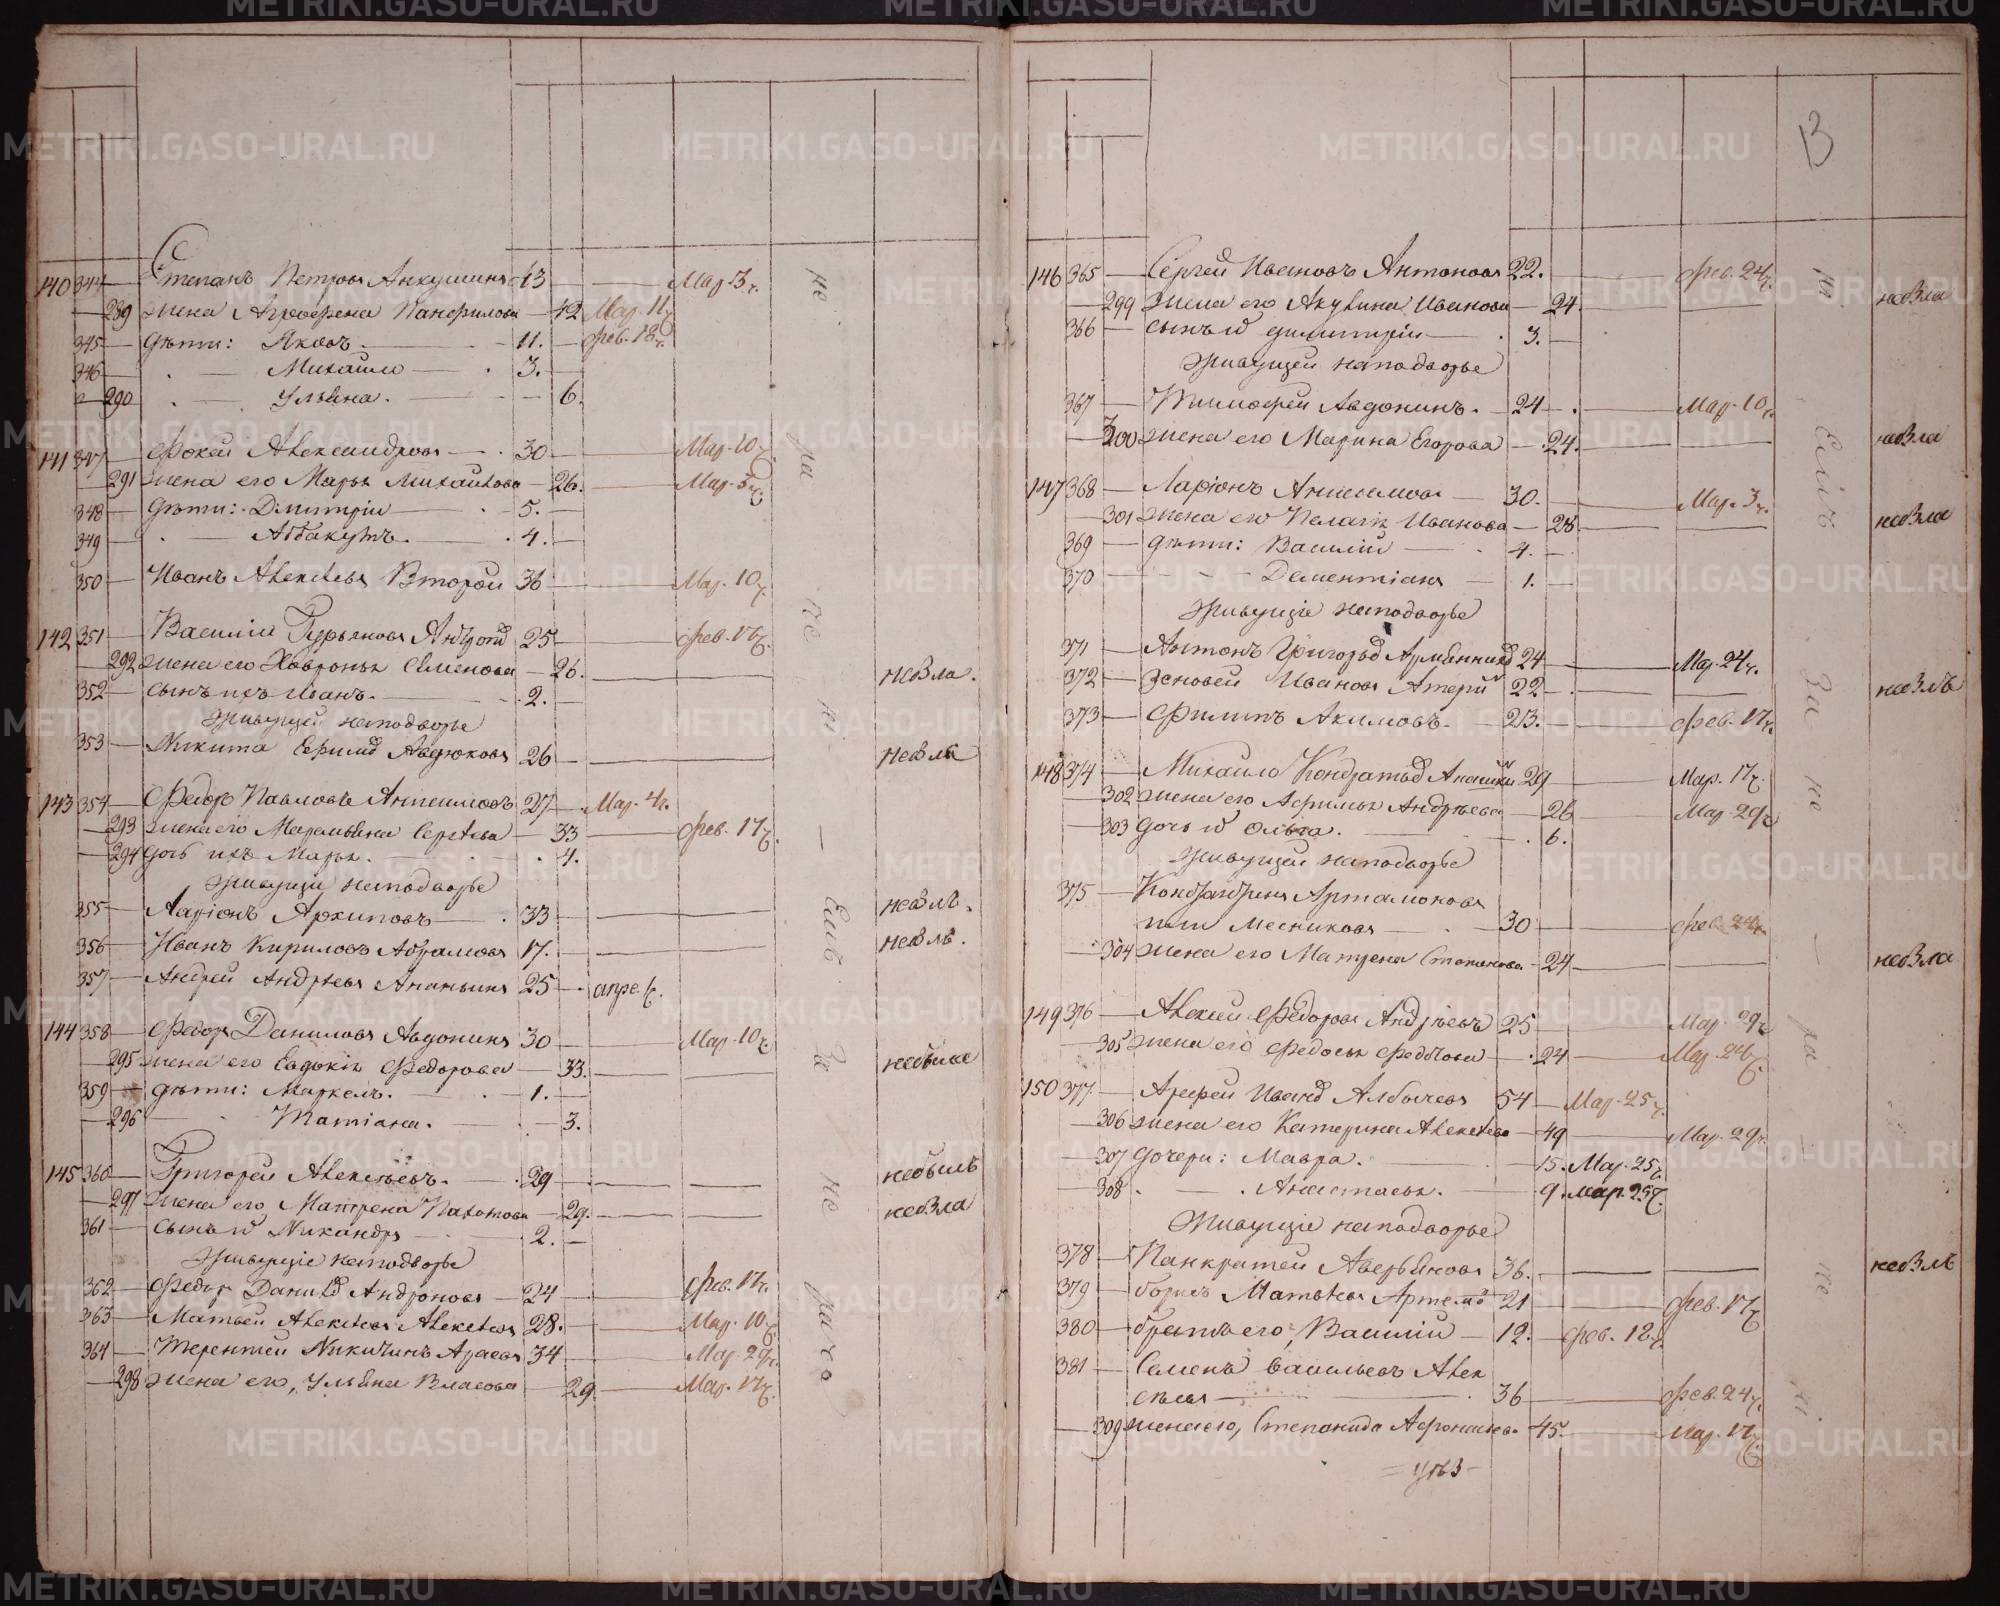 140 344 Степанъ Петровъ Анкушинъ 43 Мар. 3 ч.
289 жена Агрофена Панфилова 42 Мар. 11 ч.
345 дѣти: Яковъ. 11. фев. 18 ч.
346 Михайло 3.
290 Ульяна. 6.
141 347 Фокей Александровъ 30 Мар. 10 ч.
291 жена его Марья Михайлова 26. Мар. 3 ч.
348 дѣти: Дмитрiй 5.
349 Аббакумъ. 4.
350 Иванъ Алексѣевъ Второй 36 Мар. 10 ч.
142 351 Василiй Гурьяновъ 25 фев. 17 ч.
292 жена его Хавронья Семенова 26. небЗла.
352 сынъ ихъ Иванъ. 2.
живущей наподворье
353 Никита Ефимо Авдюковъ 26 небЗлъ
143 354 Федоръ Павловъ Анисимовъ 27 Мар. 4 ч.
293 жена его Маремьяна Сергѣева 33 фев. 17 ч.
294 дочь ихъ Марья. 4.
живущiи наподворье
355 Ларiонъ Архиповъ 33 небЗлъ.
356 Иванъ Кириловъ Абрамовъ 17. небЗлъ.
357 Андрей Андрѣевъ Ананьинъ 25
144 358 Федоръ Даниловъ Авдонинъ 30 Мар. 10 ч.
295 жена его Евдокiя Федорова 33. небыла
359 дѣти: Маркелъ. 1.
296 Татiана. 3.
145 360 Григорей Алексѣевъ. 29 небылъ
297 жена его Матрена Пахомова 29. небЗла
361 сынъ Никандръ 2.
живущiе наподворье
362 Федоръ Данило Андроновъ 24 фев. 17 ч.
363 Матвей Алексѣевъ Алексѣевъ 28. Мар. 10 ч.
364 Терентей Никитинъ 34 Мар. 29 ч.
298 жена его, Ульяна Власова 29. Мар. 17 ч.
не ра че но Елiѣ За не рачо
13
146 365 Сергей Ивановъ Антоновъ 22. фев. 24 ч.
299 жена его Акулина Иванова 24. небЗла
366 сынъ димитрiй 3.
живущей наподворье
367 Тимофей Авдонинъ. 24 Мар. 10 ч.
300 жена его Марина Егорова 24. небЗла
147 368 Ларiонъ Анисимовъ 30. Мар. 3 ч.
301 жена его Пелагiя Иванова 28 небЗла
369 дѣти: Василiй 4.
370 Дементiанъ 1.
живущiе наподворье
371 Антонъ Григорьо 24 Мар. 24 ч.
372 Зеновей Ивановъ 22 небЗлъ
373 Филипъ Акимовъ. 23. фев. 17 ч.
148 374 Михайло Кондратьо 29 Мар. 17 ч.
302 жена его Афимья Андрѣева 26 Мар. 29 ч.
303 дочь Ольга. 6.
живущей наподворье
375 Кондратей Артамоновъ
или Месниковъ 30 фев. 24 ч.
304 жена его Матрена Степанова 24 небЗла
149 376 Алексей Федоровъ Андрѣевъ 25 Мар. 29 ч.
305 жена его Федосья Федотова 24 Мар. 24 ч.
150 377. Арефей Ивано Албычевъ 54 Мар. 25 ч.
306 жена его Катерина Алексѣева 49 Мар. 29 ч.
307 дочери: Мавра. 15. Мар. 25 ч.
308 Анастасья. 9. Мар. 25 ч.
Живущiе наподворье
378 Панкратей Аверьяновъ 36. небЗлъ
379 борисъ Матвѣевъ 21 фев. 17 ч.
380 братъ его, Василiй 12. фев. 12 ч.
381 Семенъ Васильевъ Алек
сѣевъ 36 фев. 24 ч.
309 жена его, Степанида Афонасьева 45. Мар. 17 ч.